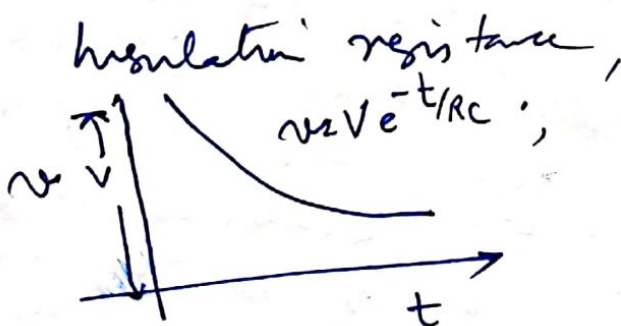 Insulation resistance,
v = V e^-t/RC ,
v V
t